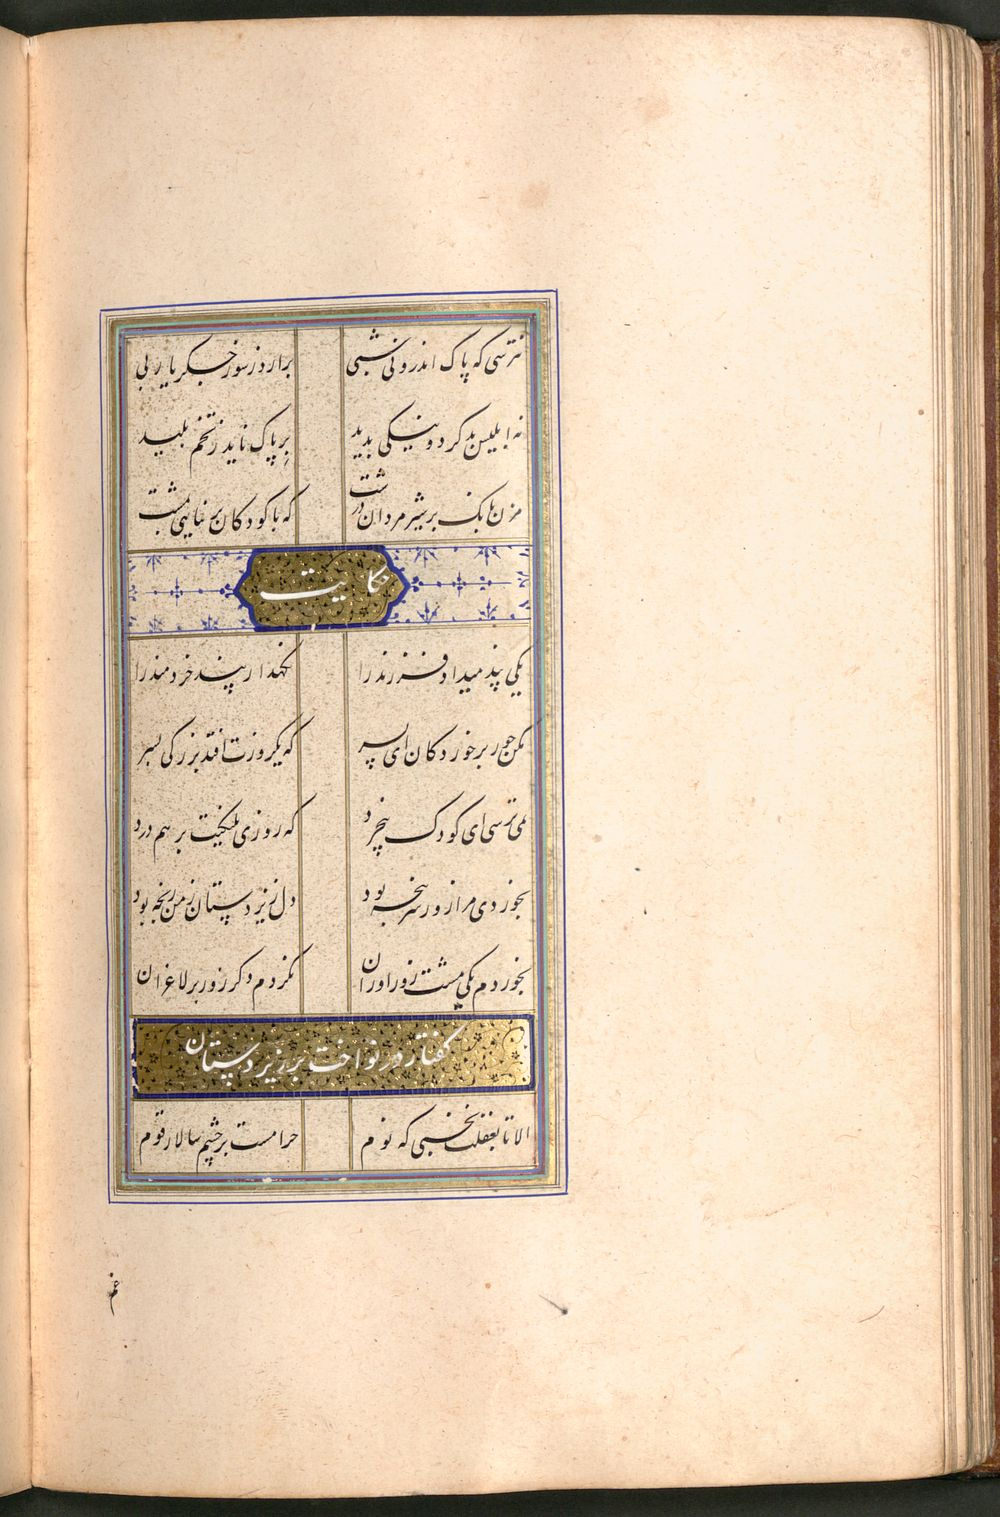 نترسی که پاک اندرونی شبی
برارد ز سوز جکر یا ربی
نه ابلیس بد کرد و نیکی بدید
بر پاک ناید ز تخم پلید
مزن بانک بر شیرمردان درشت
که با کودکان بر نیایی بمشت
حکایت
یکی پند میداد فرزند را
نکهدار پند خردمند را
مکن جور بر خوردکان ای پسر
که یکروزت افتد بزرکی بسر
نمی ترسی ای کودک بیخرد
که روزی پلنکیت بر هم درد
بخوردی مرا زور سرپنجه بود
دل زیردستان ز من رنجه بود
بخوردم یکی مشت زوراوران
نکردم دکر زور بر لاغران
کفتار در نواخت بر زیردستان
الا تا بغفلت نخسبی که نوم
حرامست بر چشم سالار قوم
غم